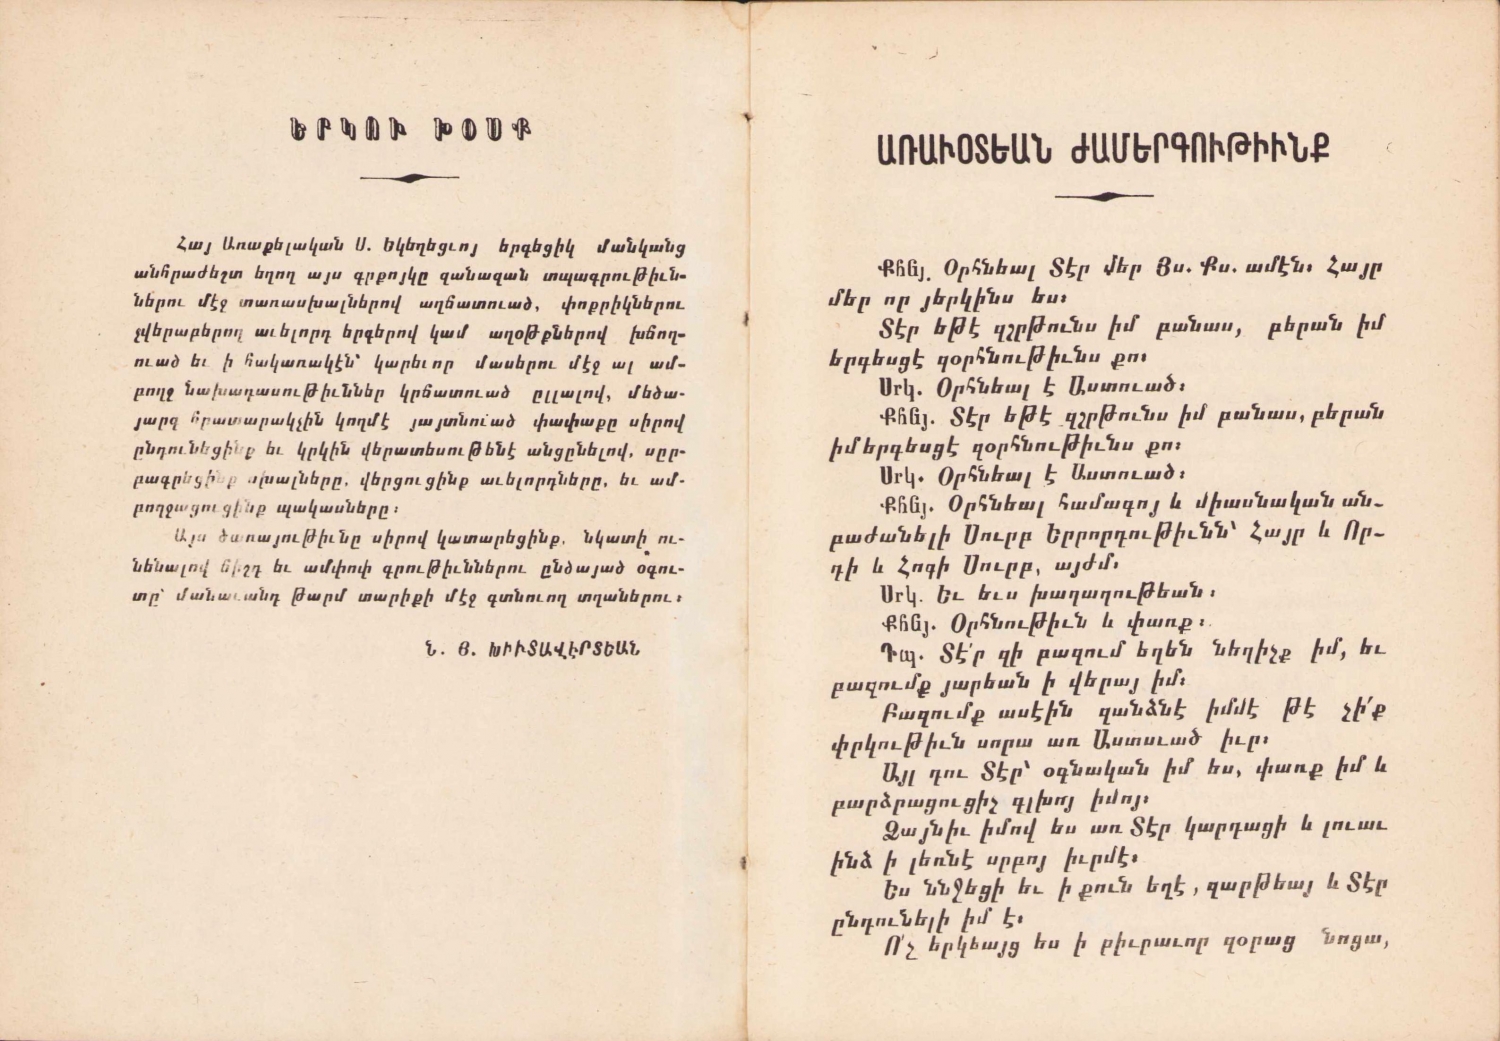 ԵՐԿՈՒ ԽՕՍՔ
Հայ Առաքելական Ս. Եկեղեցւոյ երգեցիկ մանկանց
անհրաժեշտ եղող այս գրքոյկը զանազան տպագրութիւն-
ներու մէջ տառասխալներով աղճատուած, փոքրիկներու
չվերաբերող աւելորդ երգերով կամ աղօթքներով խճող-
ուած եւ ի հակառակէն՝ կարեւոր մասերու մէջ ալ ամ-
բողջ նախադասութիւններ կրճատուած ըլլալով, մեծա-
յարգ հրատարակչին կողմէ յայտնուած փափաքը սիրով
ընդունեցինք եւ կրկին վերատեսութենէ անցընելով, սըր-
բագրեցինք սխալները, վերցուցինք աւելորդները, եւ ամ-
բողջացուցինք պակասները։
Այս ծառայութիւնը սիրով կատարեցինք, նկատի ու-
նենալով ճիշդ եւ ամփոփ գրութիւններու ընծայած օգու-
տը՝ մանաւանդ թարմ տարիքի մէջ գտնուող տղաներու։
Ն. Յ. ԽԻՒՏԱՎԷՐՏԵԱՆ
ԱՌԱՒՕՏԵԱՆ ԺԱՄԵՐԳՈՒԹԻՒՆՔ
Քհնյ. Օրհնեալ Տէր մեր Յս. Քս. ամէն։ Հայր
մեր որ յերկինս ես։
Տէր եթէ զշրթունս իմ բանաս, բերան իմ
երգեսցէ զօրհնութիւնս քո։
Սրկ. Օրհնեալ է Աստուած։
Քհնյ. Տէր եթէ զշրթունս իմ բանաս, բերան
իմ երգեսցէ զօրհնութիւնս քո։
Սրկ. Օրհնեալ է Աստուած։
Քհնյ. Օրհնեալ համագոյ և միասնական ան-
բաժանելի Սուրբ Երրորդութիւնն՝ Հայր և Որ-
դի և Հոգի Սուրբ, այժմ։
Սրկ. Եւ եւս խաղաղութեան։
Քհնյ. Օրհնութիւն և փառք։
Դպ. Տէ՛ր զի բազում եղեն նեղիչք իմ, եւ
բազումք յարեան ի վերայ իմ։
Բազումք ասէին զանձնէ իմմէ թէ չի՛ք
փրկութիւն սորա առ Աստուած իւր։
Այլ դու Տէր՝ օգնական իմ ես, փառք իմ և
բարձրացուցիչ գլխոյ իմոյ։
Ձայնիւ իմով ես առ Տէր կարդացի և լուաւ
ինձ ի լեռնէ սրբոյ իւրմէ։
Ես ննջեցի եւ ի քուն եղէ, զարթեայ և Տէր
ընդունելի իմ է։
Ո՛չ երկեայց ես ի բիւրաւոր զօրաց նոցա,